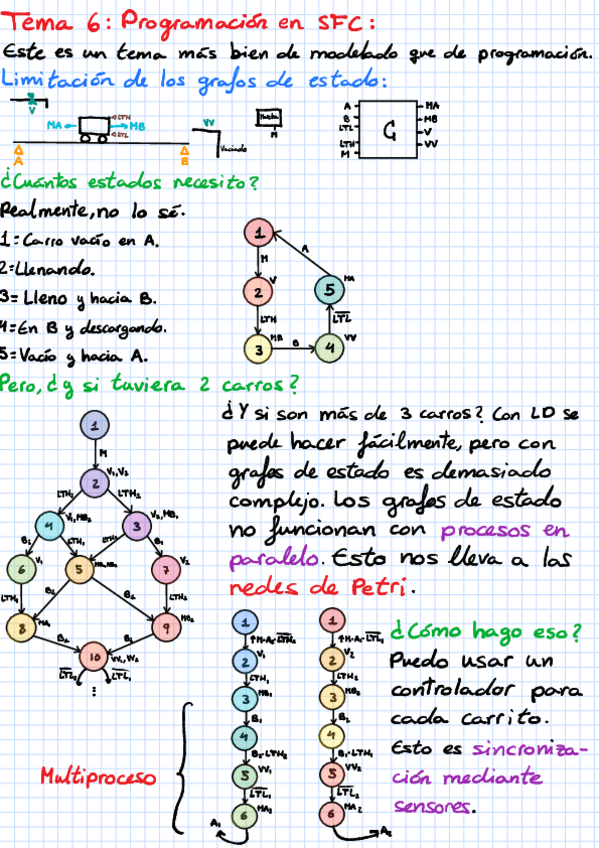 Tema 6: Programación en SFC:
Este es un tema más bien de modelado que de programación.
Limitación de los grafos de estado:
V
MA
LTH
LTL
MB
VV
Vaciado
M
A
B
A
B
LTL
LTH
M
G
MA
MB
V
VV
¿Cuántos estados necesito?
Realmente, no lo sé.
1=Carro vacío en A.
2=Llenando.
3=Lleno y hacia B.
4=En B y descargando.
5=Vacío y hacia A.
1
M
2
V
LTH
3
MB
B
4
VV
LTL
5
MA
A
Pero, ¿y si tuviera 2 carros?
1
M
2
V₁,V₂
LTH₂
LTH₁
4
V₁,MB₂
3
V₂,MB₁
B₂
LTH₁
B₁
6
V₁
5
7
V₂
LTH₁
B₂
B₁
LTH₂
8
9
B₂
B₁
10
LTL₂
LTL₁
¿Y si son más de 3 carros? Con LD se
puede hacer fácilmente, pero con
grafos de estado es demasiado
complejo. Los grafos de estado
no funcionan con procesos en
paralelo. Esto nos lleva a las
redes de Petri.
Multiproceso
1
2
V₁
LTH₁
3
MB₁
B₁
4
B₂·LTH₂
5
VV₁
LTL₁
6
MA₁
A₁
1
2
V₂
LTH₂
3
MB₂
B₂
4
B₁·LTH₁
5
VV₂
LTL₂
6
MA₂
A₂
¿Cómo hago eso?
Puedo usar un
controlador para
cada carrito.
Esto es sincroniza-
ción mediante
sensores.